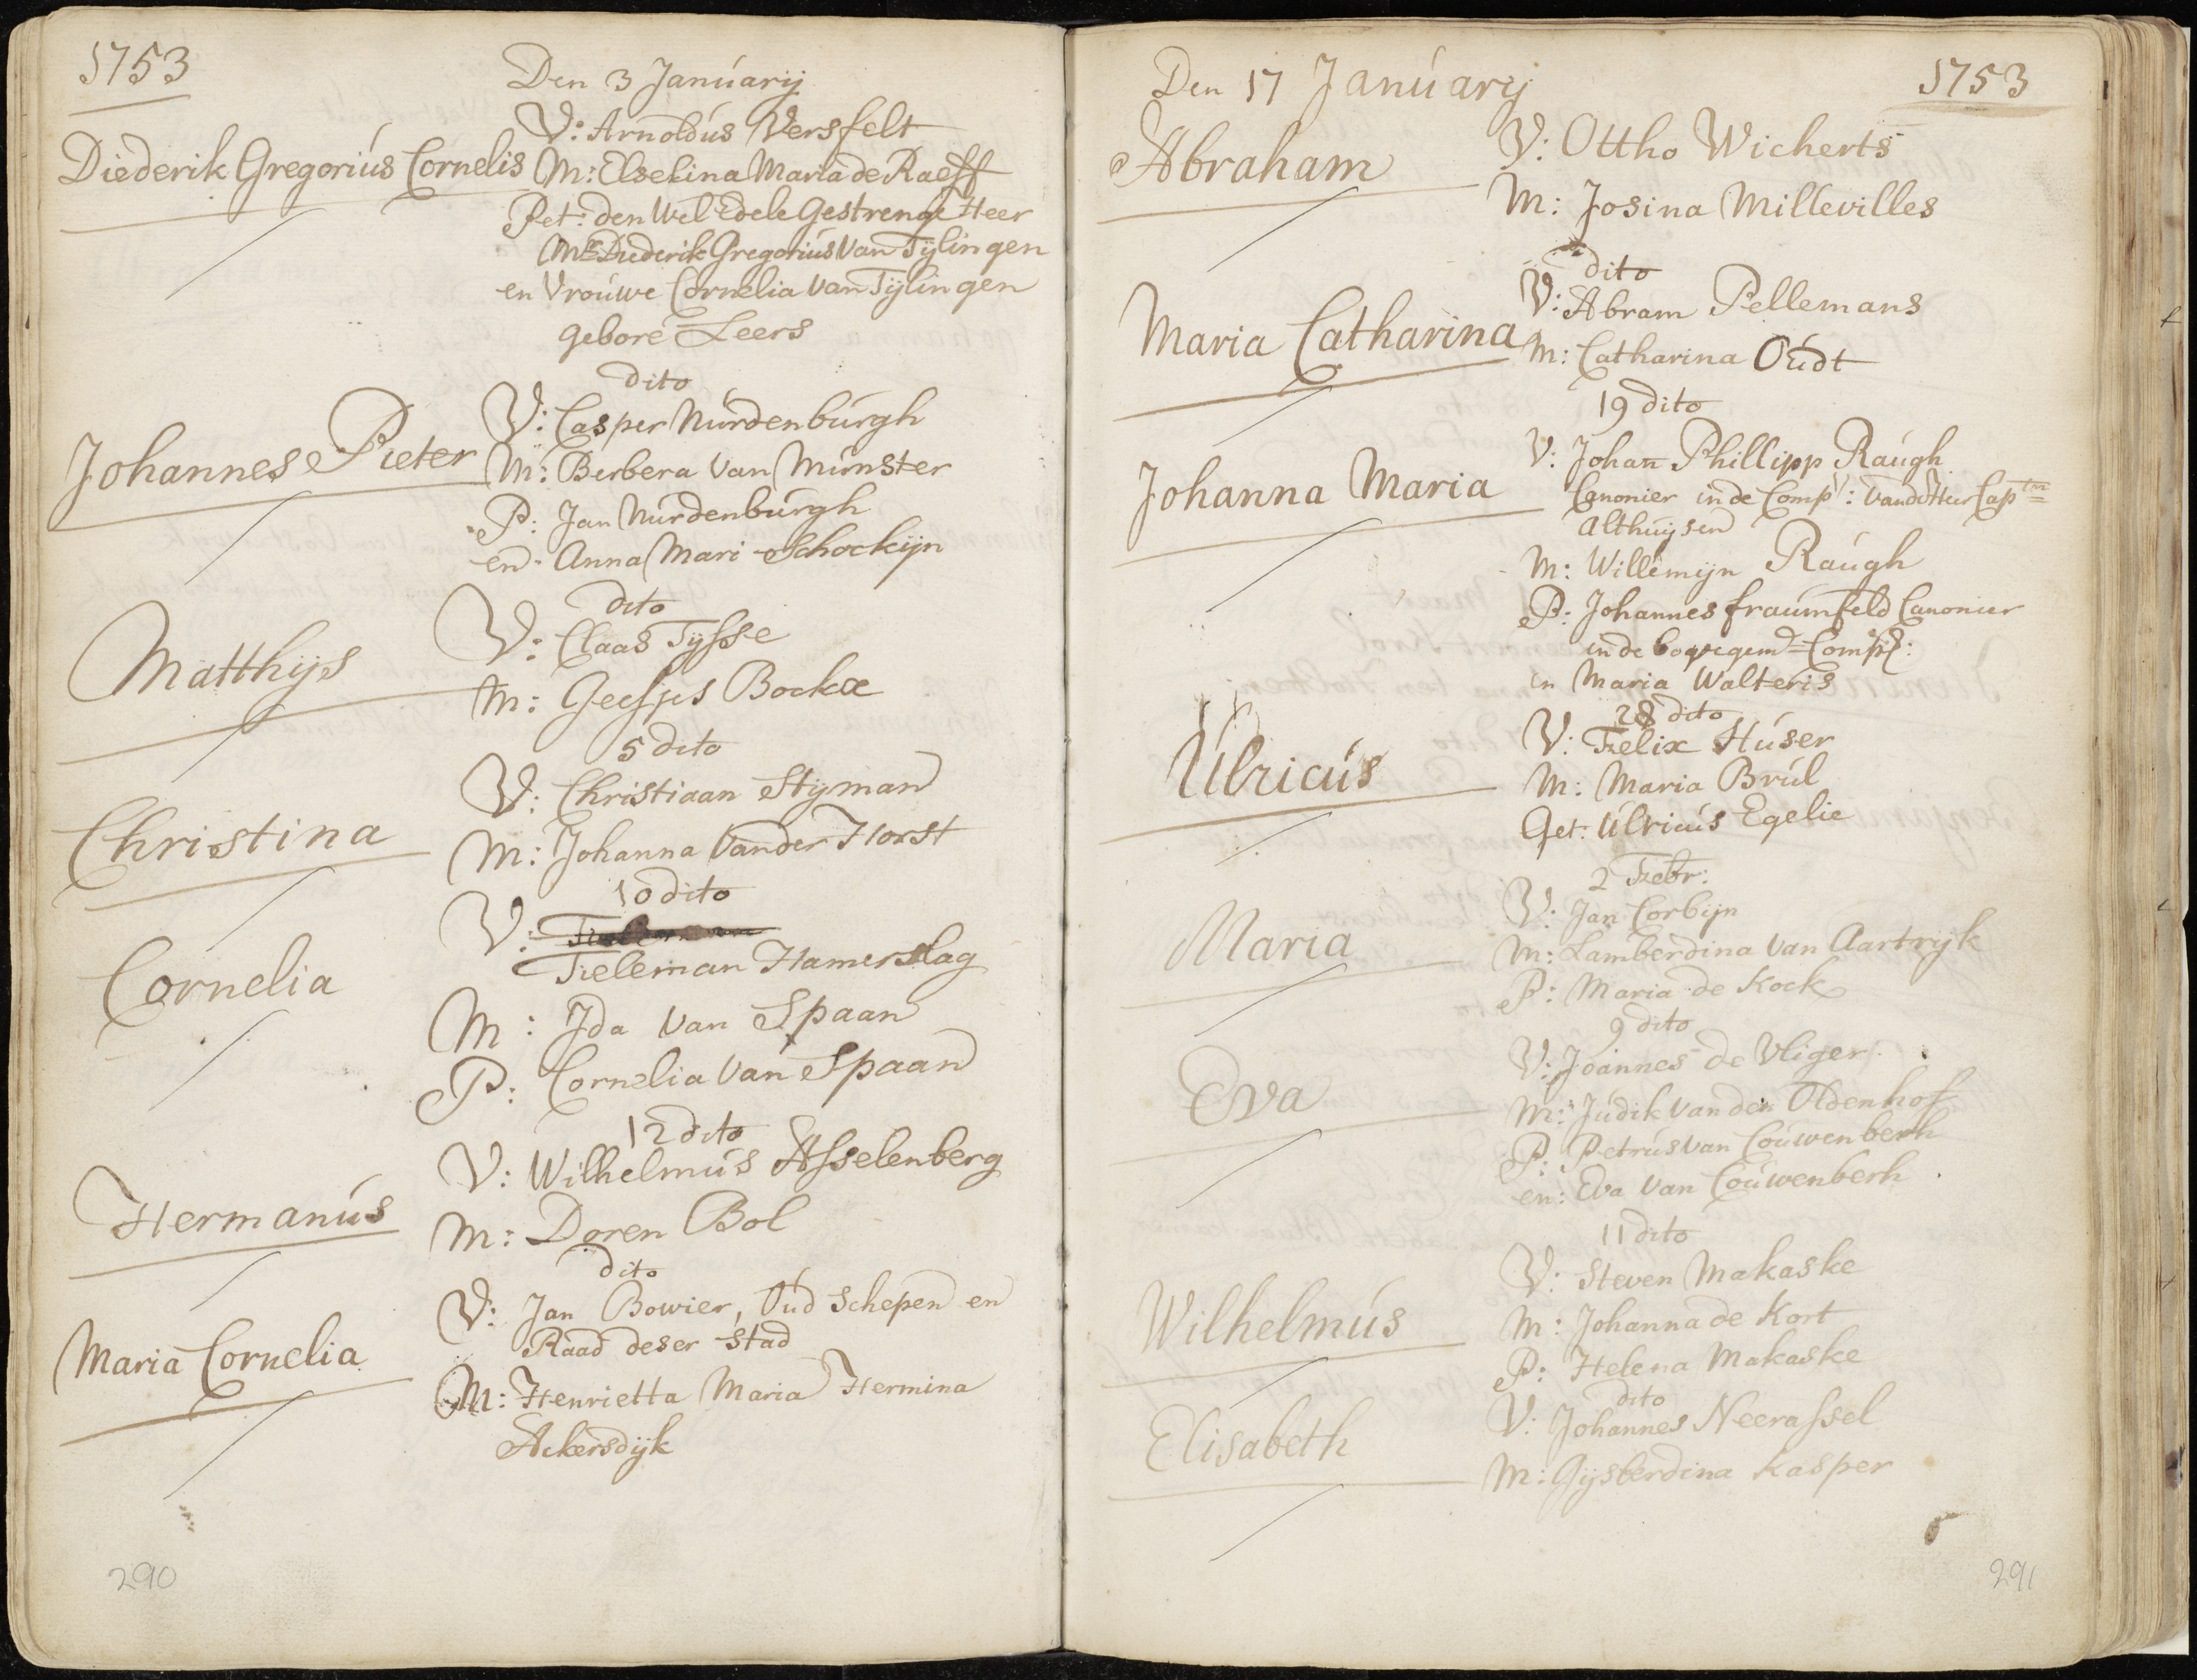 1753
Den 3 Januarij
V: Arnoldus Versfelt
Diederik Gregorius Cornelis
M: Elselina Maria de Raeff
Pet: den Wel Edele Gestrenge Heer
Mr Diederik Gregorius Van Tijlingen
en Vrouwe Cornelia Van Tijlingen
gebore Leers
dito
V: Casper Nurdenburgh
Johannes Pieter
M: Berbera Van Munster
P: Jan Nurdenburgh
en Anna Mari Schockijn
dito
V: Claas Tysse
Matthijs
M: Geesjes Bockx
5 dito
V: Christiaan Stijman
Christina
M: Johanna Vander Horst
10 dito
V:
Tieleman Hamerslag
Cornelia
M: Ida Van Spaan
P: Cornelia Van Spaan
12 dito
V: Wilhelmus Asselenberg
Hermanus
M: Doren Bol
dito
V: Jan Bowier, Oud Schepen en
Raad deser Stad
Maria Cornelia
M: Henrietta Maria Hermina
Ackersdijk
290
Den 17 January
1753
Abraham
V: Ottho Wicherts
M: Josina Millevilles
dito
V: Abram Pellemans
Maria Catharina
M: Catharina Oudt
19 dito
V: Johan Phillipp Raugh
Johanna Maria
Canonier in de Comp: Cap
Althuijsen
M: Willemijn Raugh
P: Johannes fraumfeld Canonier
in de Comp:
en Maria Walteris
28 dito
V: Felix Huser
Ulricus
M: Maria Brul
Get: Ulricus Egelie
2 Febr:
V: Jan Corbijn
Maria
M: Lamberdina Van Aartrijk
P: Maria de Kock
9 dito
V: Joannes de Vliger
Eva
M: Judik Van den Oldenhof
P: Petrus Van Couwenberh
en: Eva Van Couwenberh
11 dito
V: Steven Makaske
Wilhelmus
M: Johanna de Kort
P: Helena Makaske
dito
V: Johannes Neerassel
Elisabeth
M: Gijsberdina Kasper
291